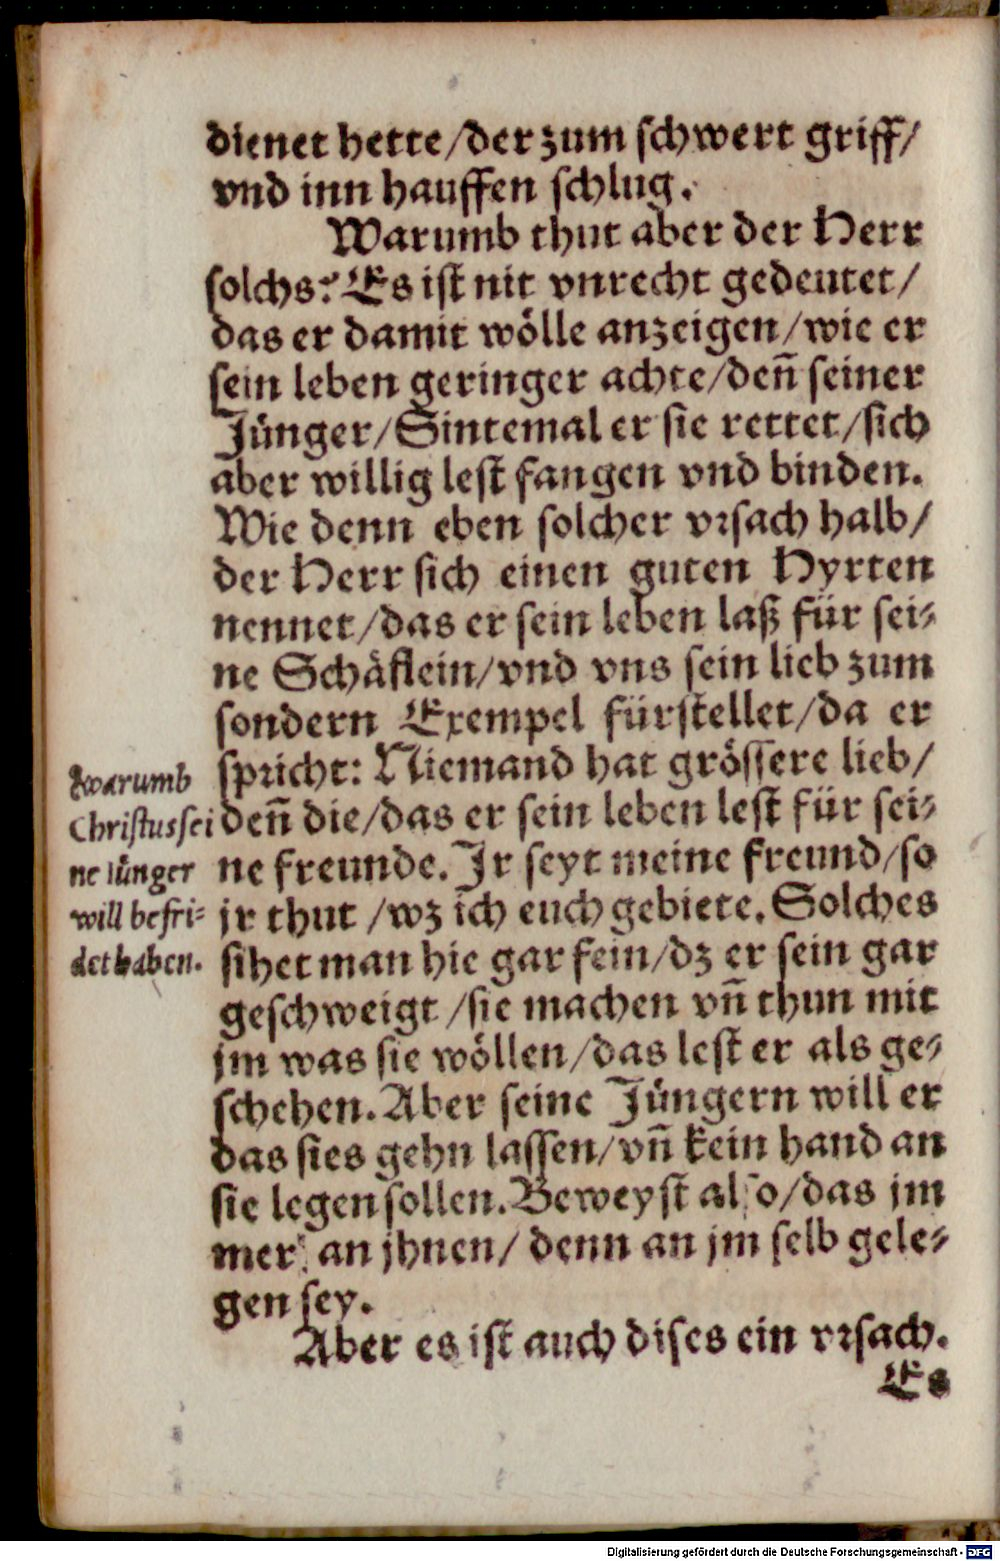 dienet hette/der zum schwert griff/
vnd inn hauffen schlug.
Warumb thut aber der Herr
solchs? Es ist nit vnrecht gedeutet/
das er damit wölle anzeigen/wie er
sein leben geringer achte/deñ seiner
Jünger/Sintemal er sie rettet/sich
aber willig lest fangen vnd binden.
Wie denn eben solcher vrsach halb/
der Herr sich einen guten Hyrten
nennet/das er sein leben laß für sei-
ne Schäflein/vnd vns sein lieb zum
sondern Exempel fürstellet/da er
spricht: Niemand hat grössere lieb/
deñ die/das er sein leben lest für sei-
ne freunde. Jr seyt meine freund/so
jr thut /wz ich euch gebiete. Solches
sihet man hie gar fein/dz er sein gar
geschweigt /sie machen vñ thun mit
jm was sie wöllen/das lest er als ge-
schehen. Aber seine Jüngern will er
das sies gehn lassen/vñ kein hand an
sie legen sollen. Beweyst also/das jm
mer an jhnen/ denn an jm selb gele-
gen sey.
Aber es ist auch dises ein vrsach.
Es
Warumb
Christus sei
ne Jünger
will befri-
det haben.
Digitalisierung gefördert durch die Deutsche Forschungsgemeinschaft - DFG